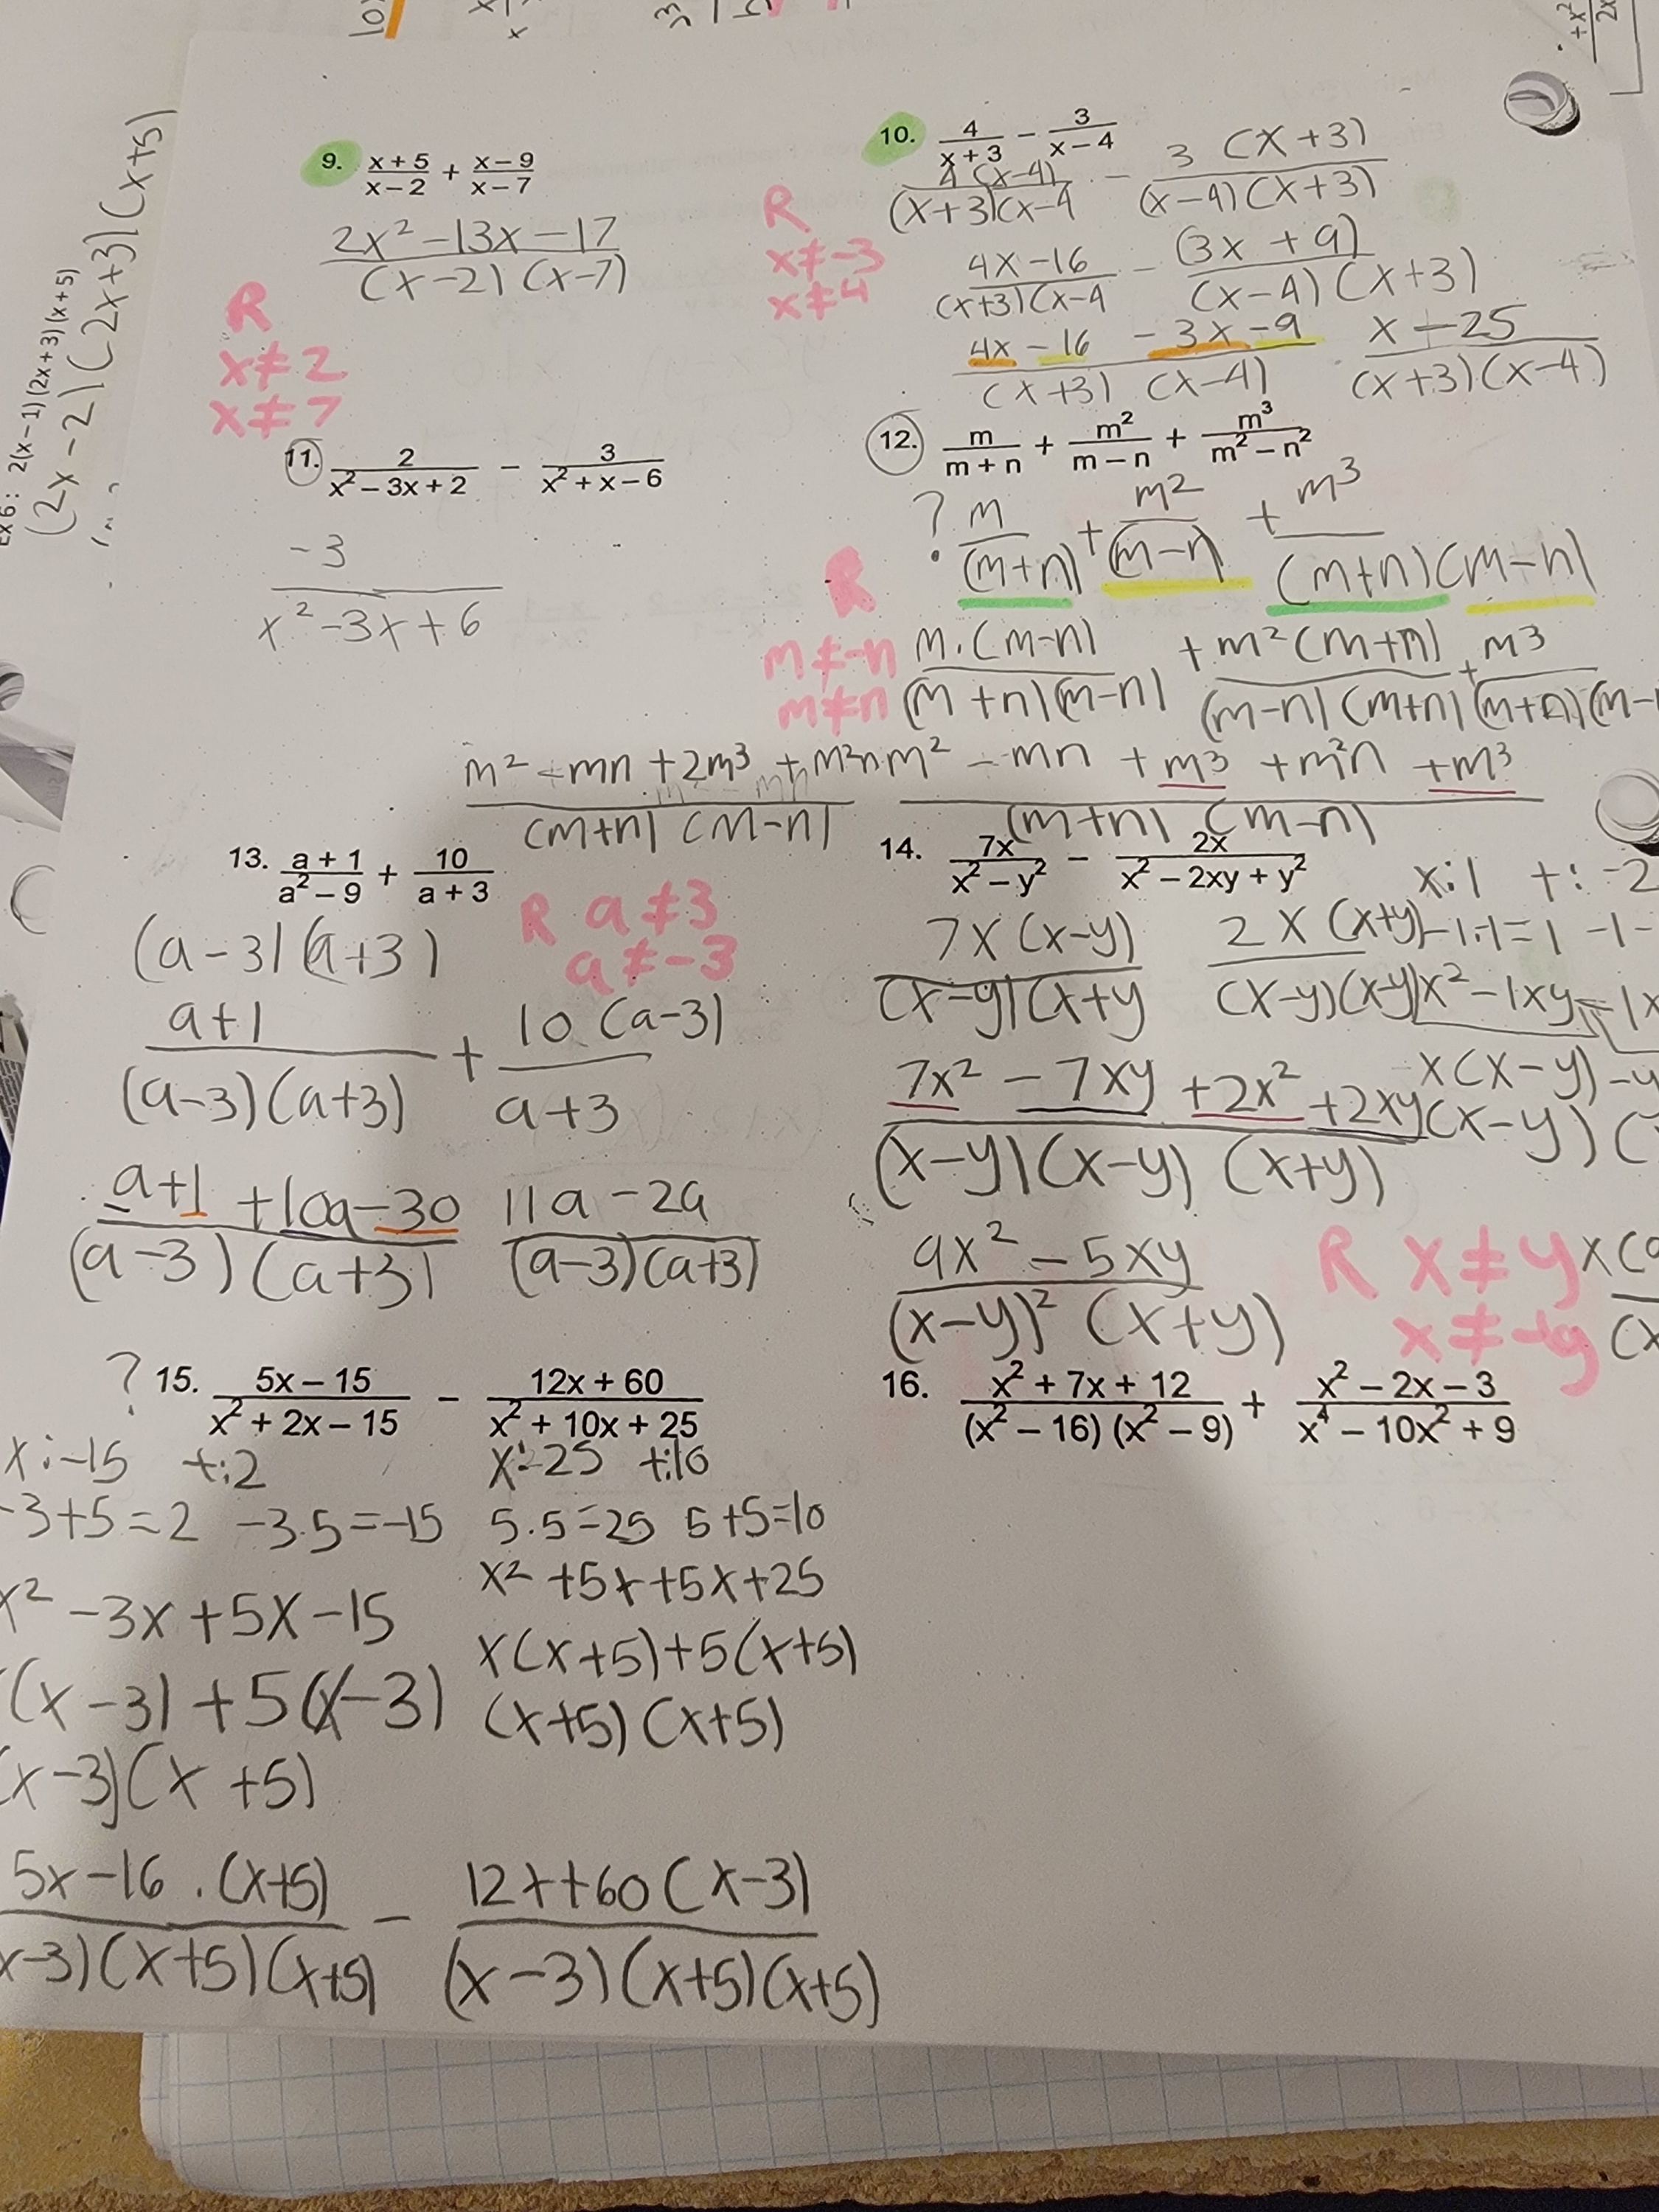 Ex 6: 2(x-1)(2x+3)(x+5)
(2x-2)(2x+3)(x+5)
9. \frac{x+5}{x-2} + \frac{x-9}{x-7}
\frac{2x²-13x-17}{(x-2)(x-7)}
R
x≠2
x≠7
10. \frac{4}{x+3} - \frac{3}{x-4}
\frac{4(x-4)}{(x+3)(x-4} - \frac{3(x+3)}{(x-4)(x+3)}
R
x≠-3
x≠4
\frac{4x-16}{(x+3)(x-4} - \frac{(3x+9)}{(x-4)(x+3)}
\frac{4x-16-3x-9}{(x+3)(x-4)} \frac{x-25}{(x+3)(x-4)}
11. \frac{2}{x²-3x+2} - \frac{3}{x²+x-6}
\frac{-3}{x²-3x+6}
12. \frac{m}{m+n} + \frac{m²}{m-n} + \frac{m³}{m²-n²}
? \frac{m}{(m+n)} + \frac{m²}{(m-n)} + \frac{m³}{(m+n)(m-n)}
R
m≠-n
m≠n
\frac{m·(m-n)}{(m+n)(m-n)} + \frac{m²(m+n)}{(m-n)(m+n)} + \frac{m³}{(m+n)(m-}
\frac{m²-mn+2m³+m²n}{(m+n)(m-n)} \frac{m²-mn+m³+m²n+m³}{(m+n)(m-n)}
13. \frac{a+1}{a²-9} + \frac{10}{a+3}
(a-3)(a+3)
R a≠3
a≠-3
\frac{a+1}{(a-3)(a+3)} + \frac{10(a-3)}{a+3}
\frac{a+1+10a-30}{(a-3)(a+3)} \frac{11a-29}{(a-3)(a+3)}
14. \frac{7x}{x²-y²} - \frac{2x}{x²-2xy+y²}
x:1 +:-2
\frac{7x(x-y)}{(x-y)(x+y} \frac{2x(x+y)}{(x-y)(x-y)}
-1·-1=1 -1-
x²-1xy-1x
x(x-y)-y
(x-y)(
\frac{7x²-7xy+2x²+2xy}{(x-y)(x-y)(x+y)}
\frac{9x²-5xy}{(x-y)²(x+y)}
R x≠y
x≠-y
? 15. \frac{5x-15}{x²+2x-15} - \frac{12x+60}{x²+10x+25}
x:-15 +:2
-3+5=2 -3·5=-15
x²-3x+5x-15
(x-3)+5(x-3)
(x-3)(x+5)
x:25 +:10
5·5=25 5+5=10
x²+5x+5x+25
x(x+5)+5(x+5)
(x+5)(x+5)
\frac{5x-16·(x+5)}{x-3)(x+5)(x+5)} - \frac{12x+60(x-3)}{(x-3)(x+5)(x+5)}
16. \frac{x²+7x+12}{(x²-16)(x²-9)} + \frac{x²-2x-3}{x⁴-10x²+9}